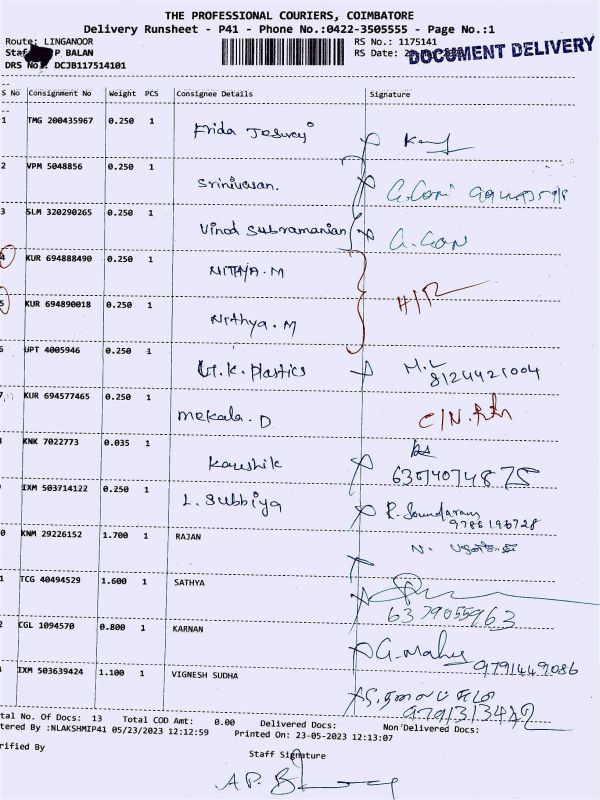 THE PROFESSIONAL COURIERS, COIMBATORE
Delivery Runsheet - P41 - Phone No.:0422-3505555 - Page No.:1
Route: LINGANOOR
RS No.: 1175141
Staf P BALAN
RS Date:
DOCUMENT DELIVERY
DRS No.: DCJB117514101
S No Consignment No Weight PCS Consignee Details Signature
1 TMG 200435967 0.250 1 Frida
2 VPM 5048856 0.250 1 Srinivasan.
3 SLM 320290265 0.250 1 Vinod Subramanian
4 KUR 694888490 0.250 1 NITHYA.M
5 KUR 694890018 0.250 1 Nithya.M
UPT 4005946 0.250 1 Plastics M.L
8124421004
7 KUR 694577465 0.250 1 Mekala.D
KNK 7022773 0.035 1 Kaushik
IXM 503714122 0.250 1 L. Subbiya R. Soundaram
9786196728
0 KNM 29226152 1.700 1 RAJAN
1 TCG 40494529 1.600 1 SATHYA
6379055963
2 CGL 1094570 0.800 1 KARNAN 9791449086
IXM 503639424 1.100 1 VIGNESH SUDHA
tal No. Of Docs: 13 Total COD Amt: 0.00 Delivered Docs: Non Delivered Docs:
tered By :NLAKSHMIP41 05/23/2023 12:12:59 Printed On: 23-05-2023 12:13:07
rified By
Staff Signature